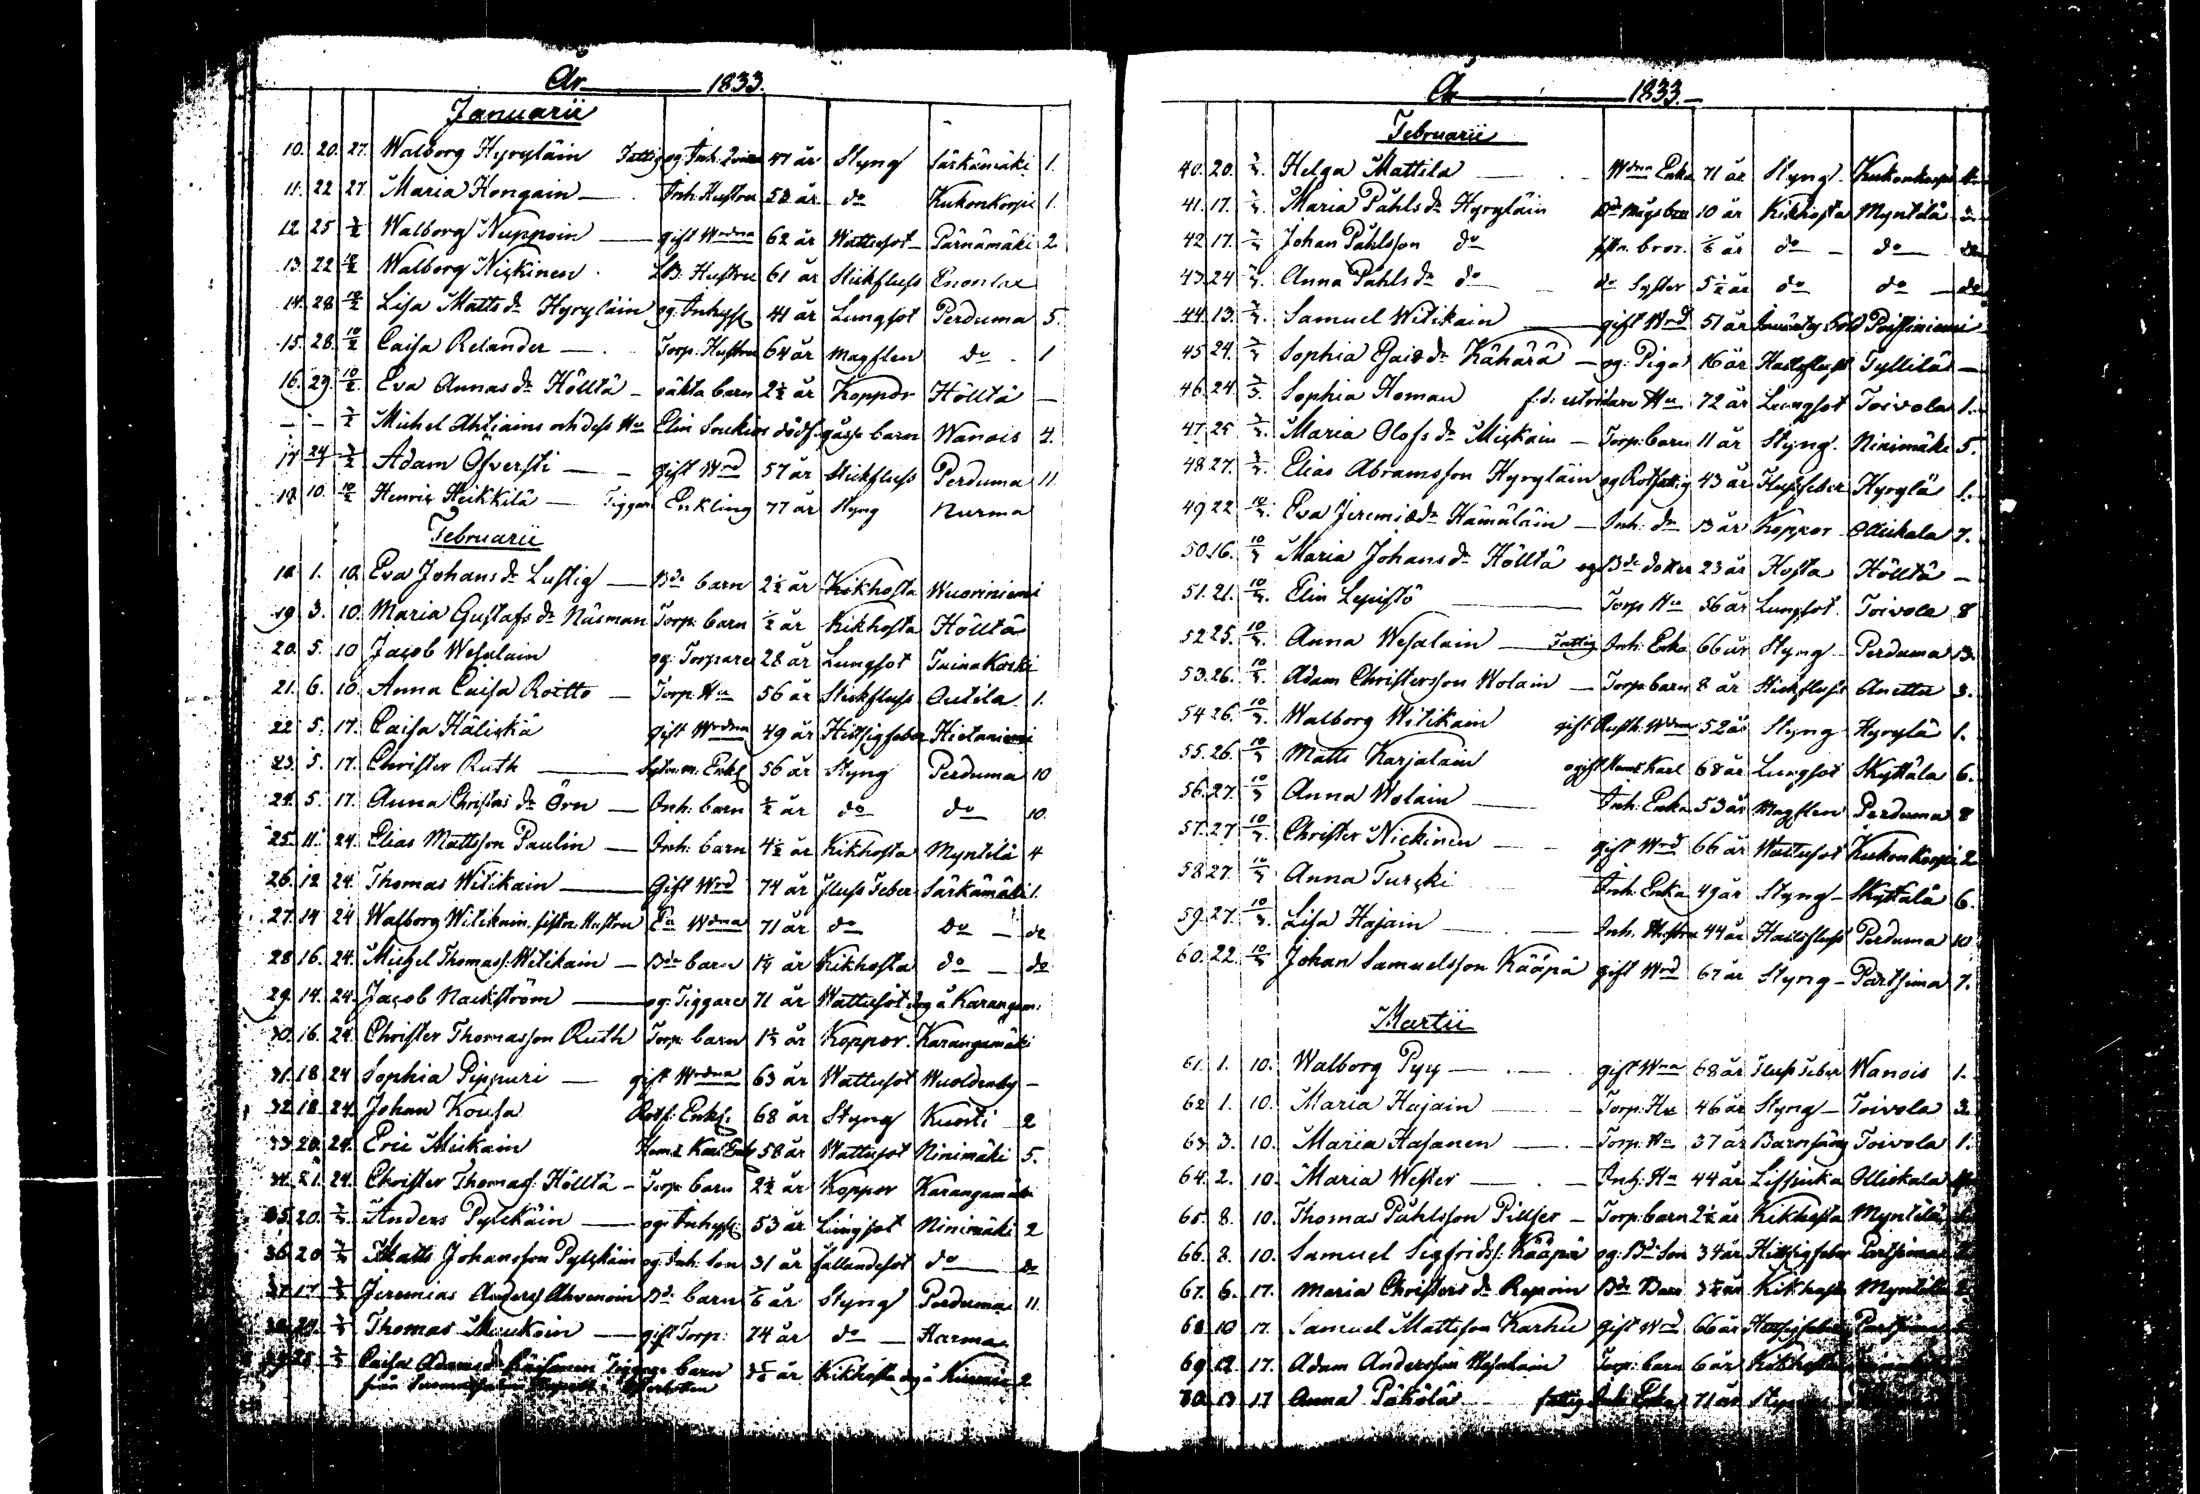 År 1833.
Januarii
10. 20. 27. Walborg Hyryläin Fattig og. Inh. Qvina 47 år Styng Särkämäki 1.
11. 22 27. Maria Hongain Inh. Hustru 53 år do Kukonkorpi 1.
12 25 3/2 Walborg Nuppoin gift Wrdna 62 år Wattusot Pärnämäki 2
13. 22 10/2 Walborg Niskinen Hustru 61 år Stickfluss
14. 28 10/2 Lisa Matts dr Hyryläin og. Inhys 41 år Lungsot Perduma 5.
15. 28. 10/2 Caisa Relander Torp. Hustru 64 år Magplen do 1
16. 29. 10/2 Eva Annas dr Hölltä oäkta barn 2 1/2 år Koppor Hölltä
- - 3/2 Michel Ahtiains och dess Hu Elin Soukins dödf. gosse barn Wanois 4.
17 24 3/2 Adam Öfversti gift Wrd 57 år Stickfluss Perduma 11
18 10. 10/2 Henric Heikkilä Tiggar Enkling 77 år Styng Nurma
Februarii
18. 1. 10. Eva Johans dr Lustig Bde barn 2 1/2 år Kikhosta Wuoriniemi
19 3. 10. Maria Gustafs dr Näsman Torp. barn 1/2 år Kikhosta Hölltä
20. 5. 10 Jacob Wesalain og. Torpare 28 år Lungsot Tainakoski
21. 6. 10. Anna Caisa Roitto Torp. Hu 56 år Stickfluss Autila 1.
22 5. 17. Caisa Häliskä gift Wrdna 49 år Hitsigfeber Hietaniemi
23. 5. 17. Christer Ruth Enkl 56 år Styng Perduma 10
24. 5. 17. Anna Christers dr Örn Inh. barn 1/2 år do do 10.
25. 11. 24. Elias Mattsson Paulin Inh. barn 4 1/2 år Kikhosta Myntilä 4
26. 12 24. Thomas Witikain Gift Wrd 74 år Fluss Feber Särkämäki 1.
27. 14 24 Walborg Witikain, Hustru Wdna 71 år do do do
28 16. 24. Michel Thomass. Witikain Bde barn 1 1/4 år Kikhosta do do
29. 14. 24. Jacob Nackström og. Tiggare 71 år Wattusot dog å Karangam:
30. 16. 24. Christer Thomasson Ruth Torp. barn 1 1/2 år Koppor. Karangamäki
31. 18 24 Sophia Pippuri gift Wrdna 63 år Wattusot Wuoldenby
32 18. 24. Johan Kousa Rotf. Enkl. 68 år Styng Kuorti 2
33 20. 24. Eric Miikain Enkl 58 år Wattusot Ninimäki 5.
34. 21. 24. Christer Thomass. Hölltä Torp. barn 2 1/2 år Koppor Karangamäki
35. 20. 3/3 Anders Pylckäin og. Inhys: 53 år Lungsot Ninimäki 2
36. 20 3/3 Matts Johansson Pylckäin og. Inh. Son 31 år fallandesot do do
37. 17 3/3 Jeremias Anderss Ahvenoin Bde barn 5/6 år Styng Perduma 11.
38. 3/3 Thomas Maukoin gift Torp: 74 år do Harma
39. 25 3/3 Caisa Adams dr Räisänen Tiggare barn år Kikhosta dog å 2
från Österbotten
År 1833.
Februarii
40. 20. 3/3. Helga Mattila Wdna Enka 71 år Styng. Kukonkorpi
41. 17. 3/3. Maria Påhls dr Hyryläin Bde Mågs barn 10 år Kikhosta Myntilä
42 17. 3/3 Johan Påhlsson do bror. 1/6 år do do do
43. 24 3/3. Anna Påhls dr do do Syster 5 1/2 år do do do
44. 13. 3/3. Samuel Witikain gift Wrd 51 år Poistiniemi
45 24. 3/3 Sophia Gais dr Kähärä og. Piga 16 år Halsfluss Tyllilä
46. 24 3/3. Sophia Homan f.d. utridare Hu 72 år Lungsot Toivola 1.
47. 25 3/3. Maria Olofs dr Miskain Torp. barn 11 år Styng. Ninimäki 5.
48. 27. 3/3. Elias Abramsson Hyryläin og Rotfattig 43 år Flussfeber Hyrylä 1.
49. 22 10/3. Eva Jeremiæ dr Hämäläin Inh. dr 13 år Koppor Ollickala 7.
50. 16. 10/3 Maria Johans dr Hölltä og Bde dotter 23 år Hosta Hölltä
51. 21. 10/3. Elin Lepistö Torp Hu 56 år Lungsot. Toivola 8
52 25. 10/3. Anna Wesalain Fattig Inh. Enka 66 år Styng Perduma 13.
53. 26. 10/3. Adam Christersson Wolain Torp. barn 8 år Stickfluss Anettu 3.
54 26. 10/3. Walborg Witikain gift Rusth. Wdna 52 år Styng Hyrylä 1.
55. 26. 10/3 Matts Karjalain ogift Karl 68 år Lungsot Skyttälä 6.
56. 27. 10/3 Anna Wolain Inh. Enka 53 år Magplen Perduma 8
57. 27 10/3. Christer Nickinen gift Wrd 66 år Wattusot Kukonkorpi 2
58. 27. 10/3 Anna Turcki Inh. Enka 49 år Styng Skyttälä 6.
59. 27. 10/3. Lisa Hajain Inh. Hustru 44 år Halsfluss Perduma 10
60. 22. 10/3 Johan Samuelsson Kääpä gift Wrd 67 år Styng Partsima 7.
Martii
61. 1. 10. Walborg Pyy gift Wna 68 år Fluss feber Wanois 1.
62 1. 10. Maria Hajain Torp. Hu 46 år Styng Toivola 3.
63 3. 10. Maria Hasanen Torp. Hu 37 år Barnsäng Toivola 1.
64. 2. 10. Maria Wester Inh. Hu 44 år Lissjuka Ollickala
65. 8. 10. Thomas Påhlsson Pillser Torp. barn 2 1/2 år Kikhosta Myntilä
66. 2. 10. Samuel Sigfridss. Kääpä og. Bde Son 34 år Hitsigfeber Partsima
67. 6. 17. Maria Christers dr Repoin Bde Barn 3 1/2 år Kikhosta Myntilä
68 10 17. Samuel Mattsson Karhu gift Wrd 66 år Hitsigfeber Partsima
69 12. 17. Adam Andersson Wesalain Torp. barn 6 år Kikhosta
70. 13 17 Anna Päkölä fattig Inh. Enka 71 år Styng